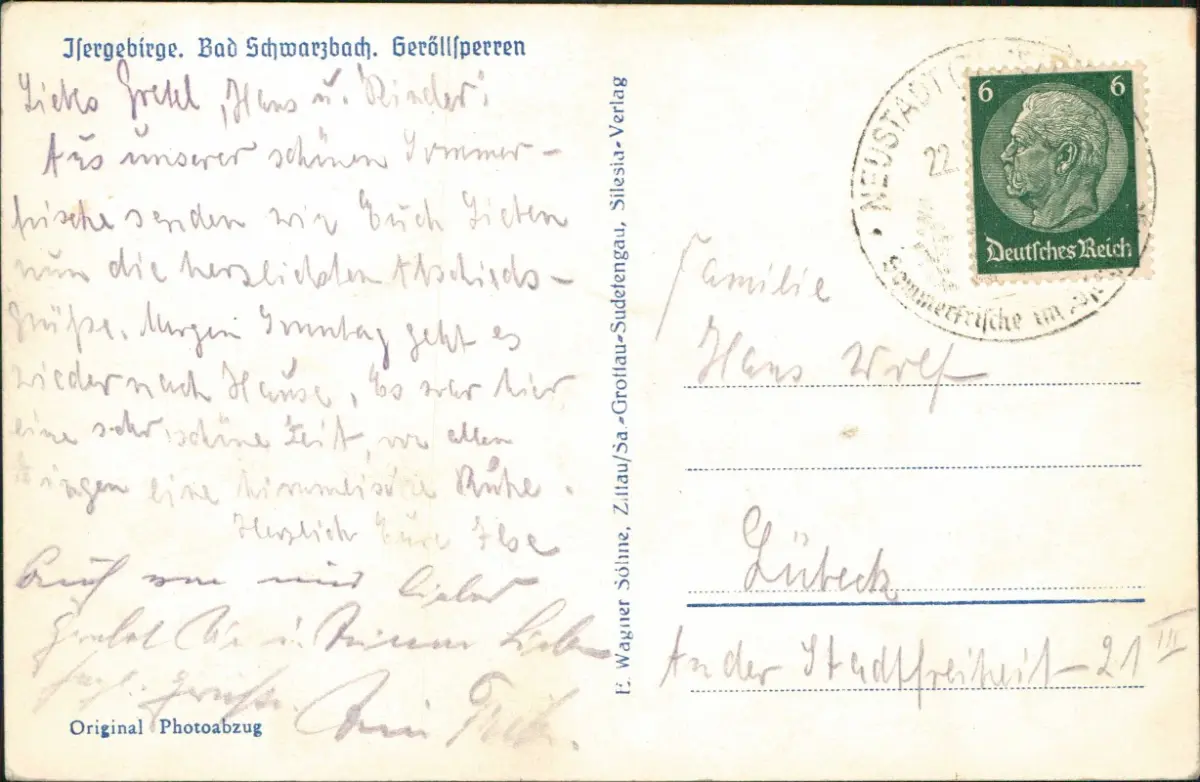 Isergebirge. Bad Schwarzbach. Geröllsperren
Liebes Gretel, Hans u. Kinder!
Aus unserer schönen Sommer-
frische senden wir Euch Lieben
nun die herzlichsten Abschieds-
grüße. Morgen Sonntag geht es
wieder nach Hause. Es war hier
eine sehr schöne Zeit, vor allen
Dingen eine himmlische Ruhe.
Herzlich Eure Ilse
Auch von mir liebes
Gretel Dir u. Deinen Lieben
herzl. Grüße. Dein
Original Photoabzug
E. Wagner Söhne, Zittau/Sa.-Grottau-Sudetengau, Silesia-Verlag
NEUSTADT
22.
Sommerfrische im
6 6
Deutsches Reich
Familie
Hans Wolf
Lübeck
An der Stadtfreiheit-21 III